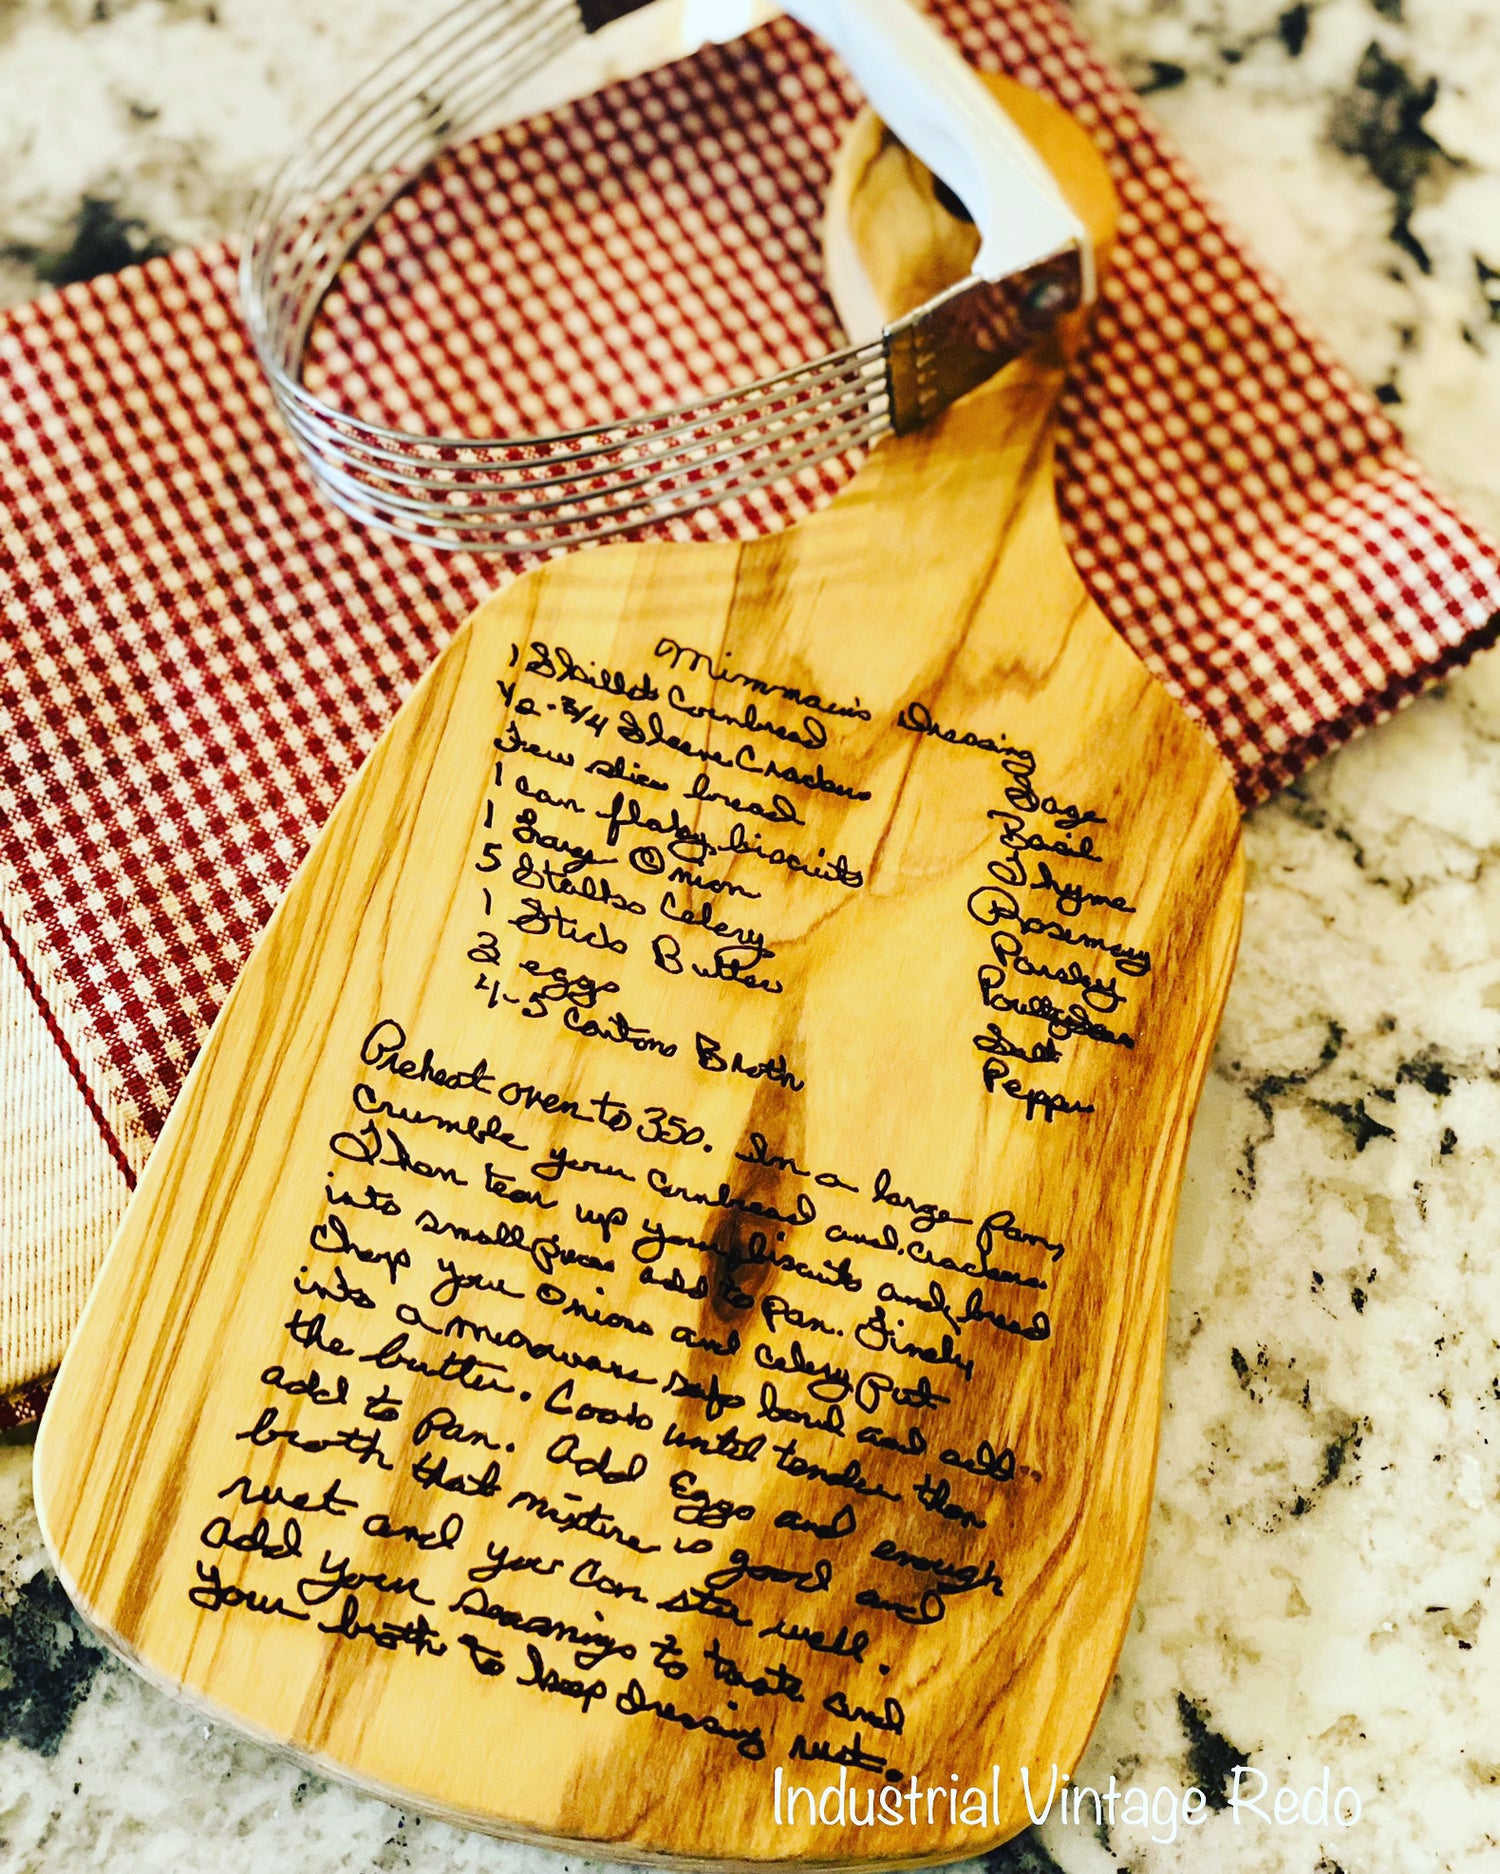 Mimmaw's Dressing
1 Skillet Cornbread
1/2-3/4 Sleeve Crackers
Few slices bread
1 can flaky biscuits
1 Large Onion
5 Stalks Celery
1 Stick Butter
3 eggs
4-5 Cartons Broth
Sage
Basil
Thyme
Rosemary
Parsley
Poultry Sea
Salt
Pepper
Preheat oven to 350. In a large pan,
crumble your cornbread and crackers.
Then tear up your biscuits and bread
into small pieces add to pan. Finely
Chop your onions and celery Put
into a microwave safe bowl and add
the butter. Cook until tender then
add to pan. Add Eggs and enough
broth that mixture is good and
wet and you can stir well.
add your seasonings to taste and
your broth to keep dressing wet.
Industrial Vintage Redo